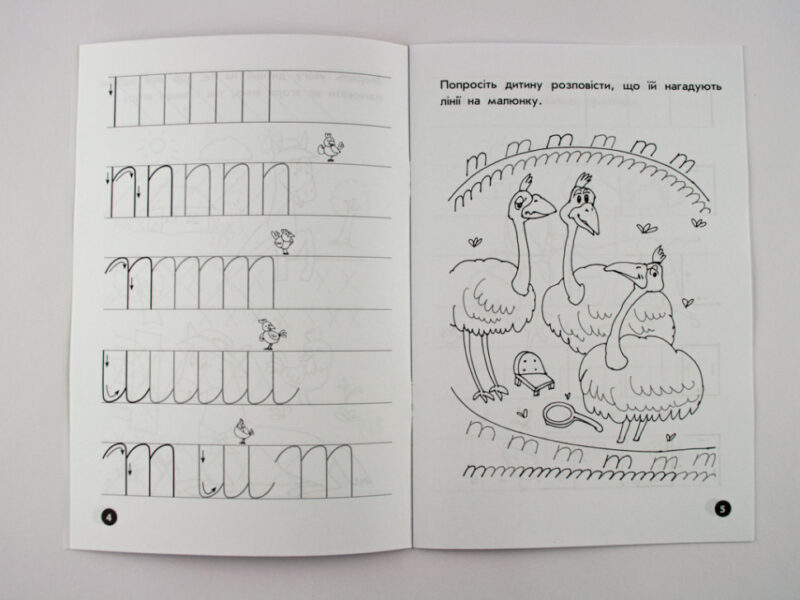 4
Попросіть дитину розповісти, що їй нагадують
лінії на малюнку.
5